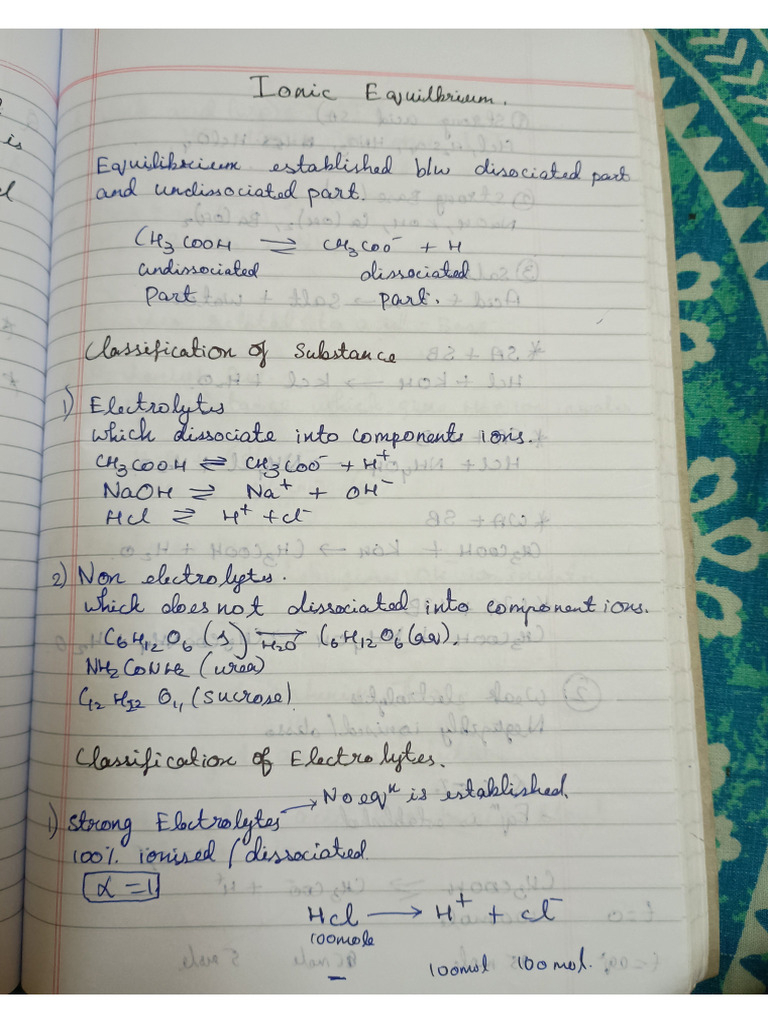 Ionic Equilbrium.
Equilibrium established b/w dissociated part
and undissociated part.
CH3COOH ⇌ CH3COO⁻ + H
undissociated dissociated
part part.
Classification of Substance
1) Electrolytes
which dissociate into components ions.
CH3COOH ⇌ CH3COO⁻ + H⁺
NaOH ⇌ Na⁺ + OH⁻
HCl ⇌ H⁺ + Cl⁻
2) Non electrolytes.
which does not dissociated into component ions.
C6H12O6 (s) ⟶ C6H12O6 (aq).
H2O
NH2CONH2 (urea)
C12H22O11 (sucrose)
Classification of Electrolytes.
→ No eqⁿ is established.
1) Strong Electrolytes
100% ionised / dissociated.
α = 1
HCl ⟶ H⁺ + Cl⁻
100mole
– 100mol 100mol.